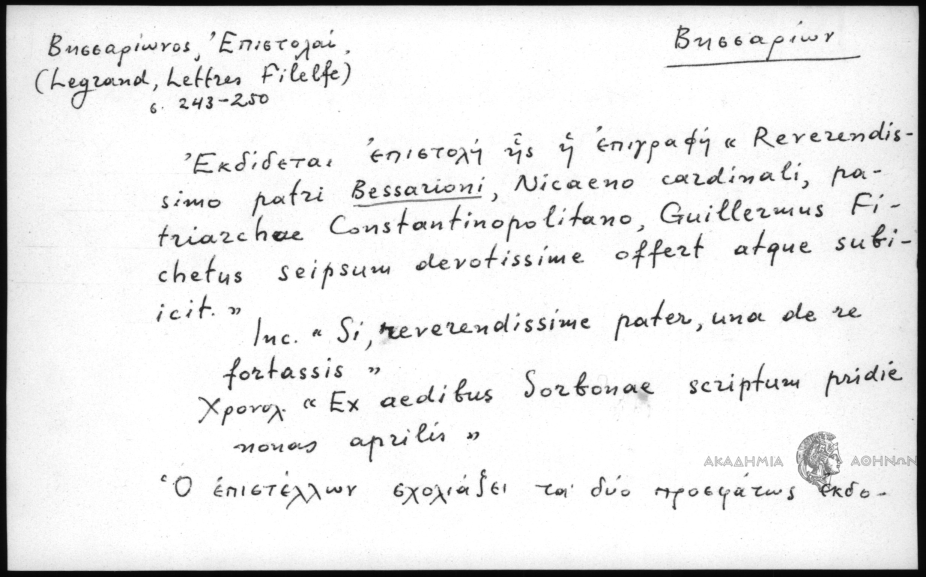 Βησσαρίωνος, Ἐπιστολαί.
(Legrand, Lettres Filelfe)
σ. 243-250
Βησσαρίων
Ἐκδίδεται ἐπιστολή ἧς ἡ ἐπιγραφή « Reverendis-
simo patri Bessarioni, Nicaeno cardinali, pa-
triarchae Constantinopolitano, Guillermus Fi-
chetus seipsum devotissime offert atque subi-
icit. »
Inc. « Si, reverendissime pater, una de re
fortassis »
Χρονολ. « Ex aedibus Sorbonae scriptum pridie
nonas aprilis »
Ὁ ἐπιστέλλων σχολιάζει τα δύο προσφάτως ἐκδο-
ΑΚΑΔΗΜΙΑ ΑΘΗΝΩΝ